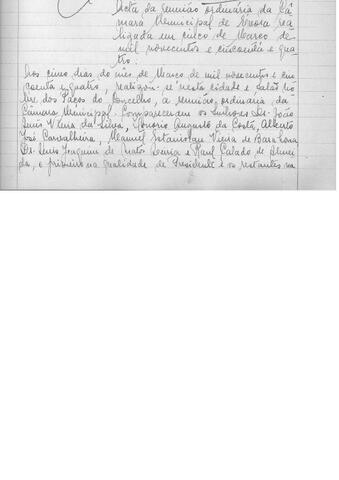 Acta da reunião ordinária da Câ-
mara Municipal de Évora rea-
lizada em cinco de Março de
mil novecentos e cincoenta e qua-
tro.
Aos cinco dias do mês de Março de mil novecentos e cin-
coenta e quatro, realizou-se nesta cidade e salão no-
bre dos Paços do Concelho, a reunião ordinária da
Câmara Municipal. Compareceram os senhores Dr. João
Luís Vieira da Silva, Honório Augusto da Costa, Alberto
José Carvalheira, Manuel Estanislau Vieira de Barahona
Dr. Luís Joaquim de Matos e Raul Calado de Almei-
da, o primeiro na qualidade de Presidente e os restantes na